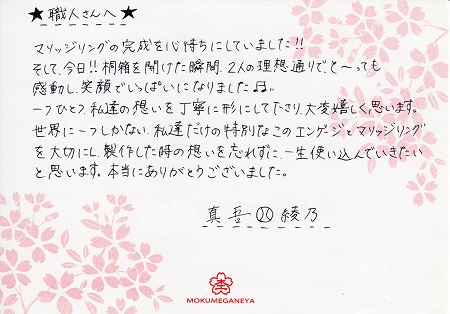 ★職人さんへ★
マリッジリングの完成を心待ちにしていました!!
そして、今日!! 桐箱を開けた瞬間、2人の理想通りでと〜っても
感動し、笑顔でいっぱいになりました♫。
一つひとつ、私達の想いを丁寧に形にして下さり、大変嬉しく思います。
世界に一つしかない、私達だけの特別なこのエンゲージとマリッジリング
を大切にし、製作した時の想いを忘れずに、一生使い込んでいきたい
と思います。本当にありがとうございました。
真吾 綾乃
MOKUMEGANEYA